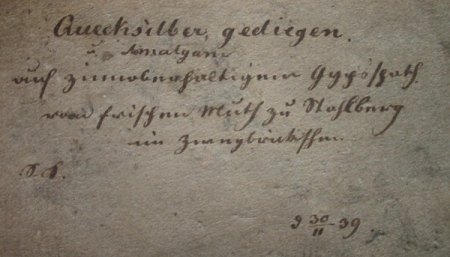 Quecksilber, gediegen.
u. Amalgam
auf zinnoberhaltigem Gypsspath.
vom frischen Muth zu Stahlberg
im Zweybrükschen.
S.S.
30/11 - 39.